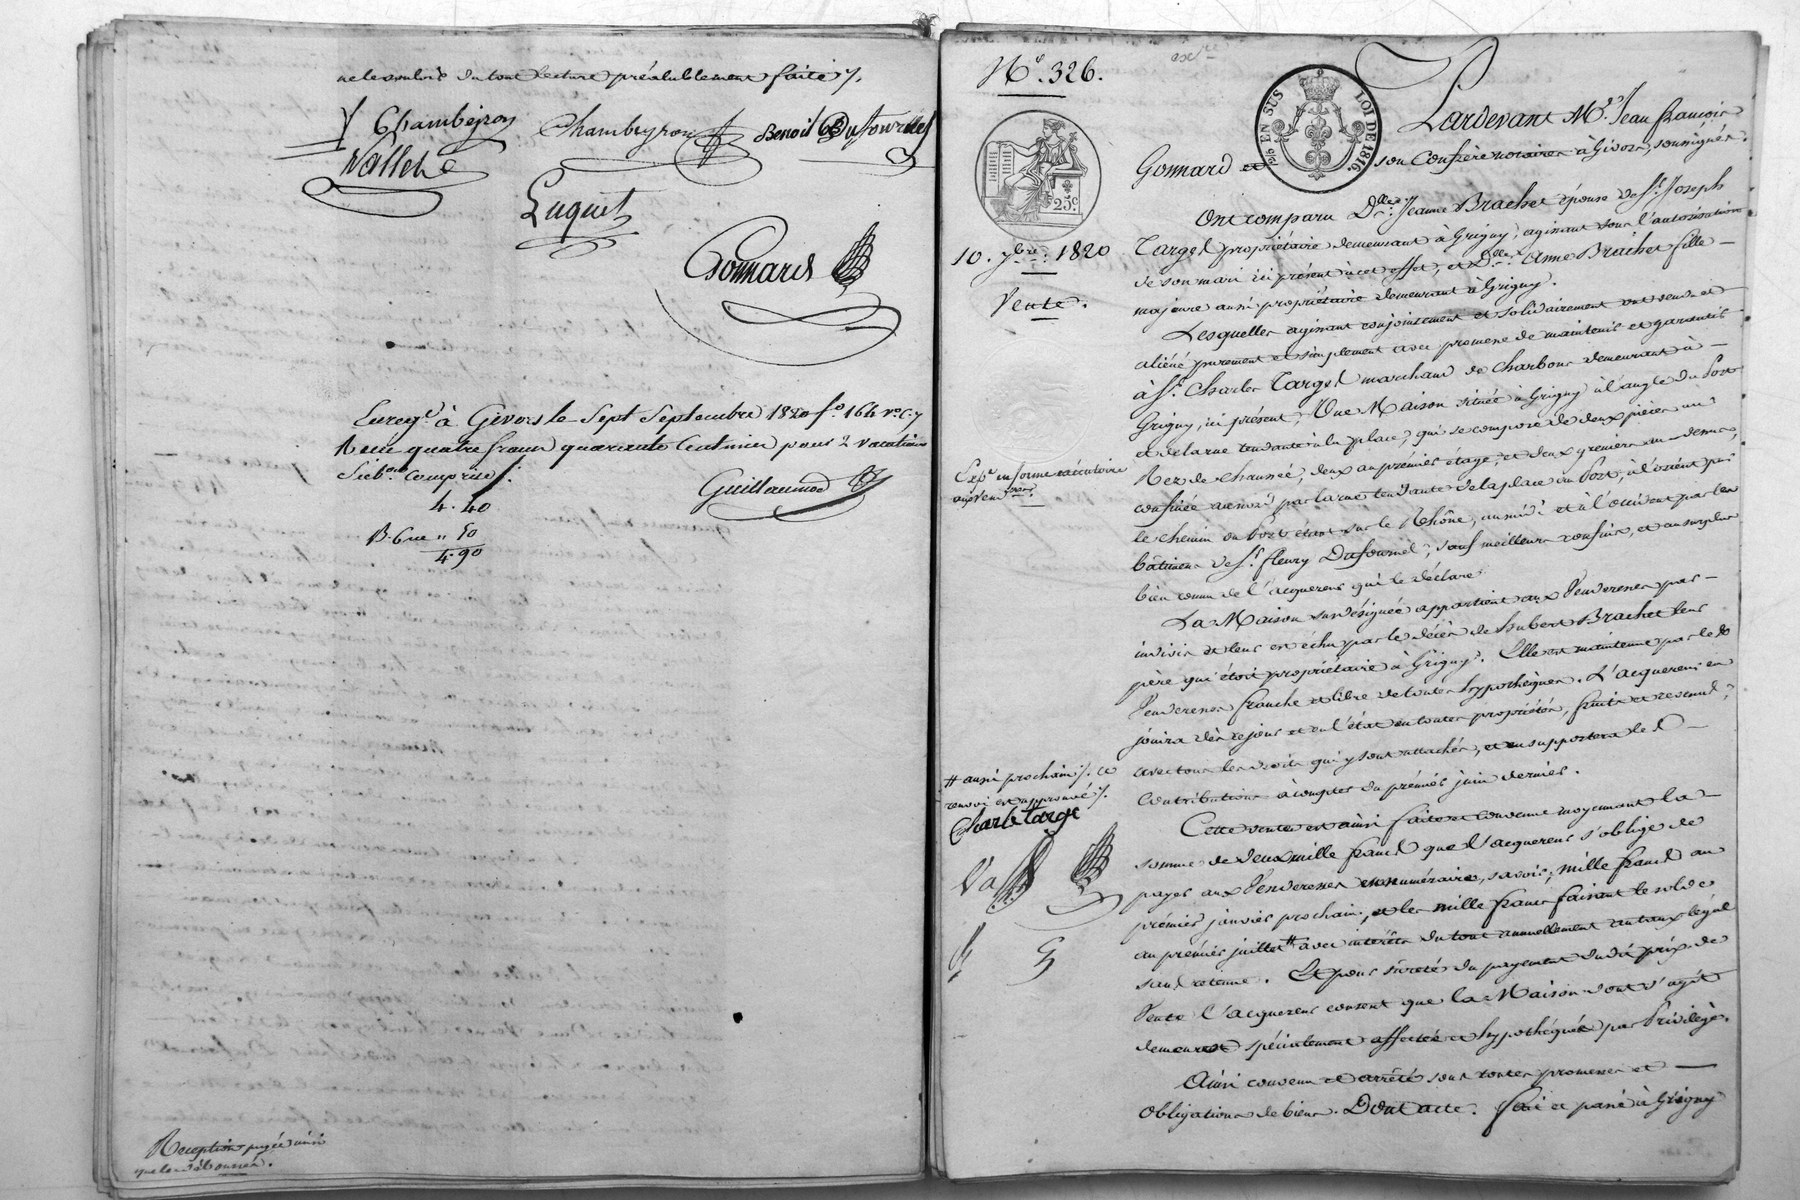 du tout lecture préalablement faite ;/.
Chambeyron Chambeyron Benoit Dufournel
Luquet
Gonnard
Enreg.é à Givors le Sept Septembre 1820 f.o 166 r.o c. 7
Reçu quatre francs quarante Centimes pour 2 vacations
comprise ;/.
4.40
Guillaumod
" 50
4.90
Reception payée ainsi
N.o 326.
EN SUS
LOI DE 1816.
25.c
Pardevant M.e Jean françois
Gonnard et son Confrère notaires à Givors, soussignés.
10. 7bre. 1820
Vente.
Ont comparu D.lle Jeanne Brachet épouse de S.r Joseph
Targe propriétaire demeurant à Grigny, agissant sous l'autorisation
de son mari ici présent à cet effet, et D.lle Anne Brachet fille
majeure aussi propriétaire demeurant à Grigny.
Lesquelles agissant conjointement et solidairement ont vendu et
aliéné purement et simplement avec promesse de maintenir et garantir
à S.r Charles Targe marchand de Charbons demeurant à
Grigny, ici présent, Une Maison située à Grigny à l'angle du Port
et de la rue tendante à la place, qui se compose de deux pièces au
Rez de chaussée, deux au prémier étage, et deux greniers au dessus,
Exp.on en forme exécutoire
confinée au nord par la rue tendante de la place au Port, à l'orient par
le chemin du Port étant sur le Rhône, au midi et à l'occident par les
bâtimens de S.r fleury Dufournel, sauf meilleurs confins, et au surplus
bien connue de l'acquereur qui le déclare.
La Maison susdésignée appartient aux Venderesses par
indivis et leur est échue par le décès de hubert Brachet leur
père qui étoit propriétaire à Grigny. Elle est maintenue par les
Venderesses franche et libre de toutes hypothèques. L'acquereur en
jouira dès ce jour et en l'état en toutes propriétés, fruits et revenus,
avec tous les droits qui y sont attachés, et en supportera les
Contributions à compter du prémier juin dernier.
# aussi prochain ;/. ce
renvoi est approuvé ;/.
Charle targe
Cette vente est ainsi faite et convenue moyennant la
somme de deux mille francs que l'acquereur s'oblige de
payer aux Venderesses en numéraire, savoir; mille francs au
prémier janvier prochain, et les mille francs faisant le solde
au prémier juillet # avec intérêts du tout annuellement au taux légal
sans retenue. Et pour sûreté du payement du dit prix de
Vente l'acquereur consent que la Maison dont s'agit
demeure spécialement affectée et hypothéquée par Privilège.
Ainsi convenu et arrêté sous toutes promesses et
Obligations de biens. Dont acte. fait et passé à Grigny